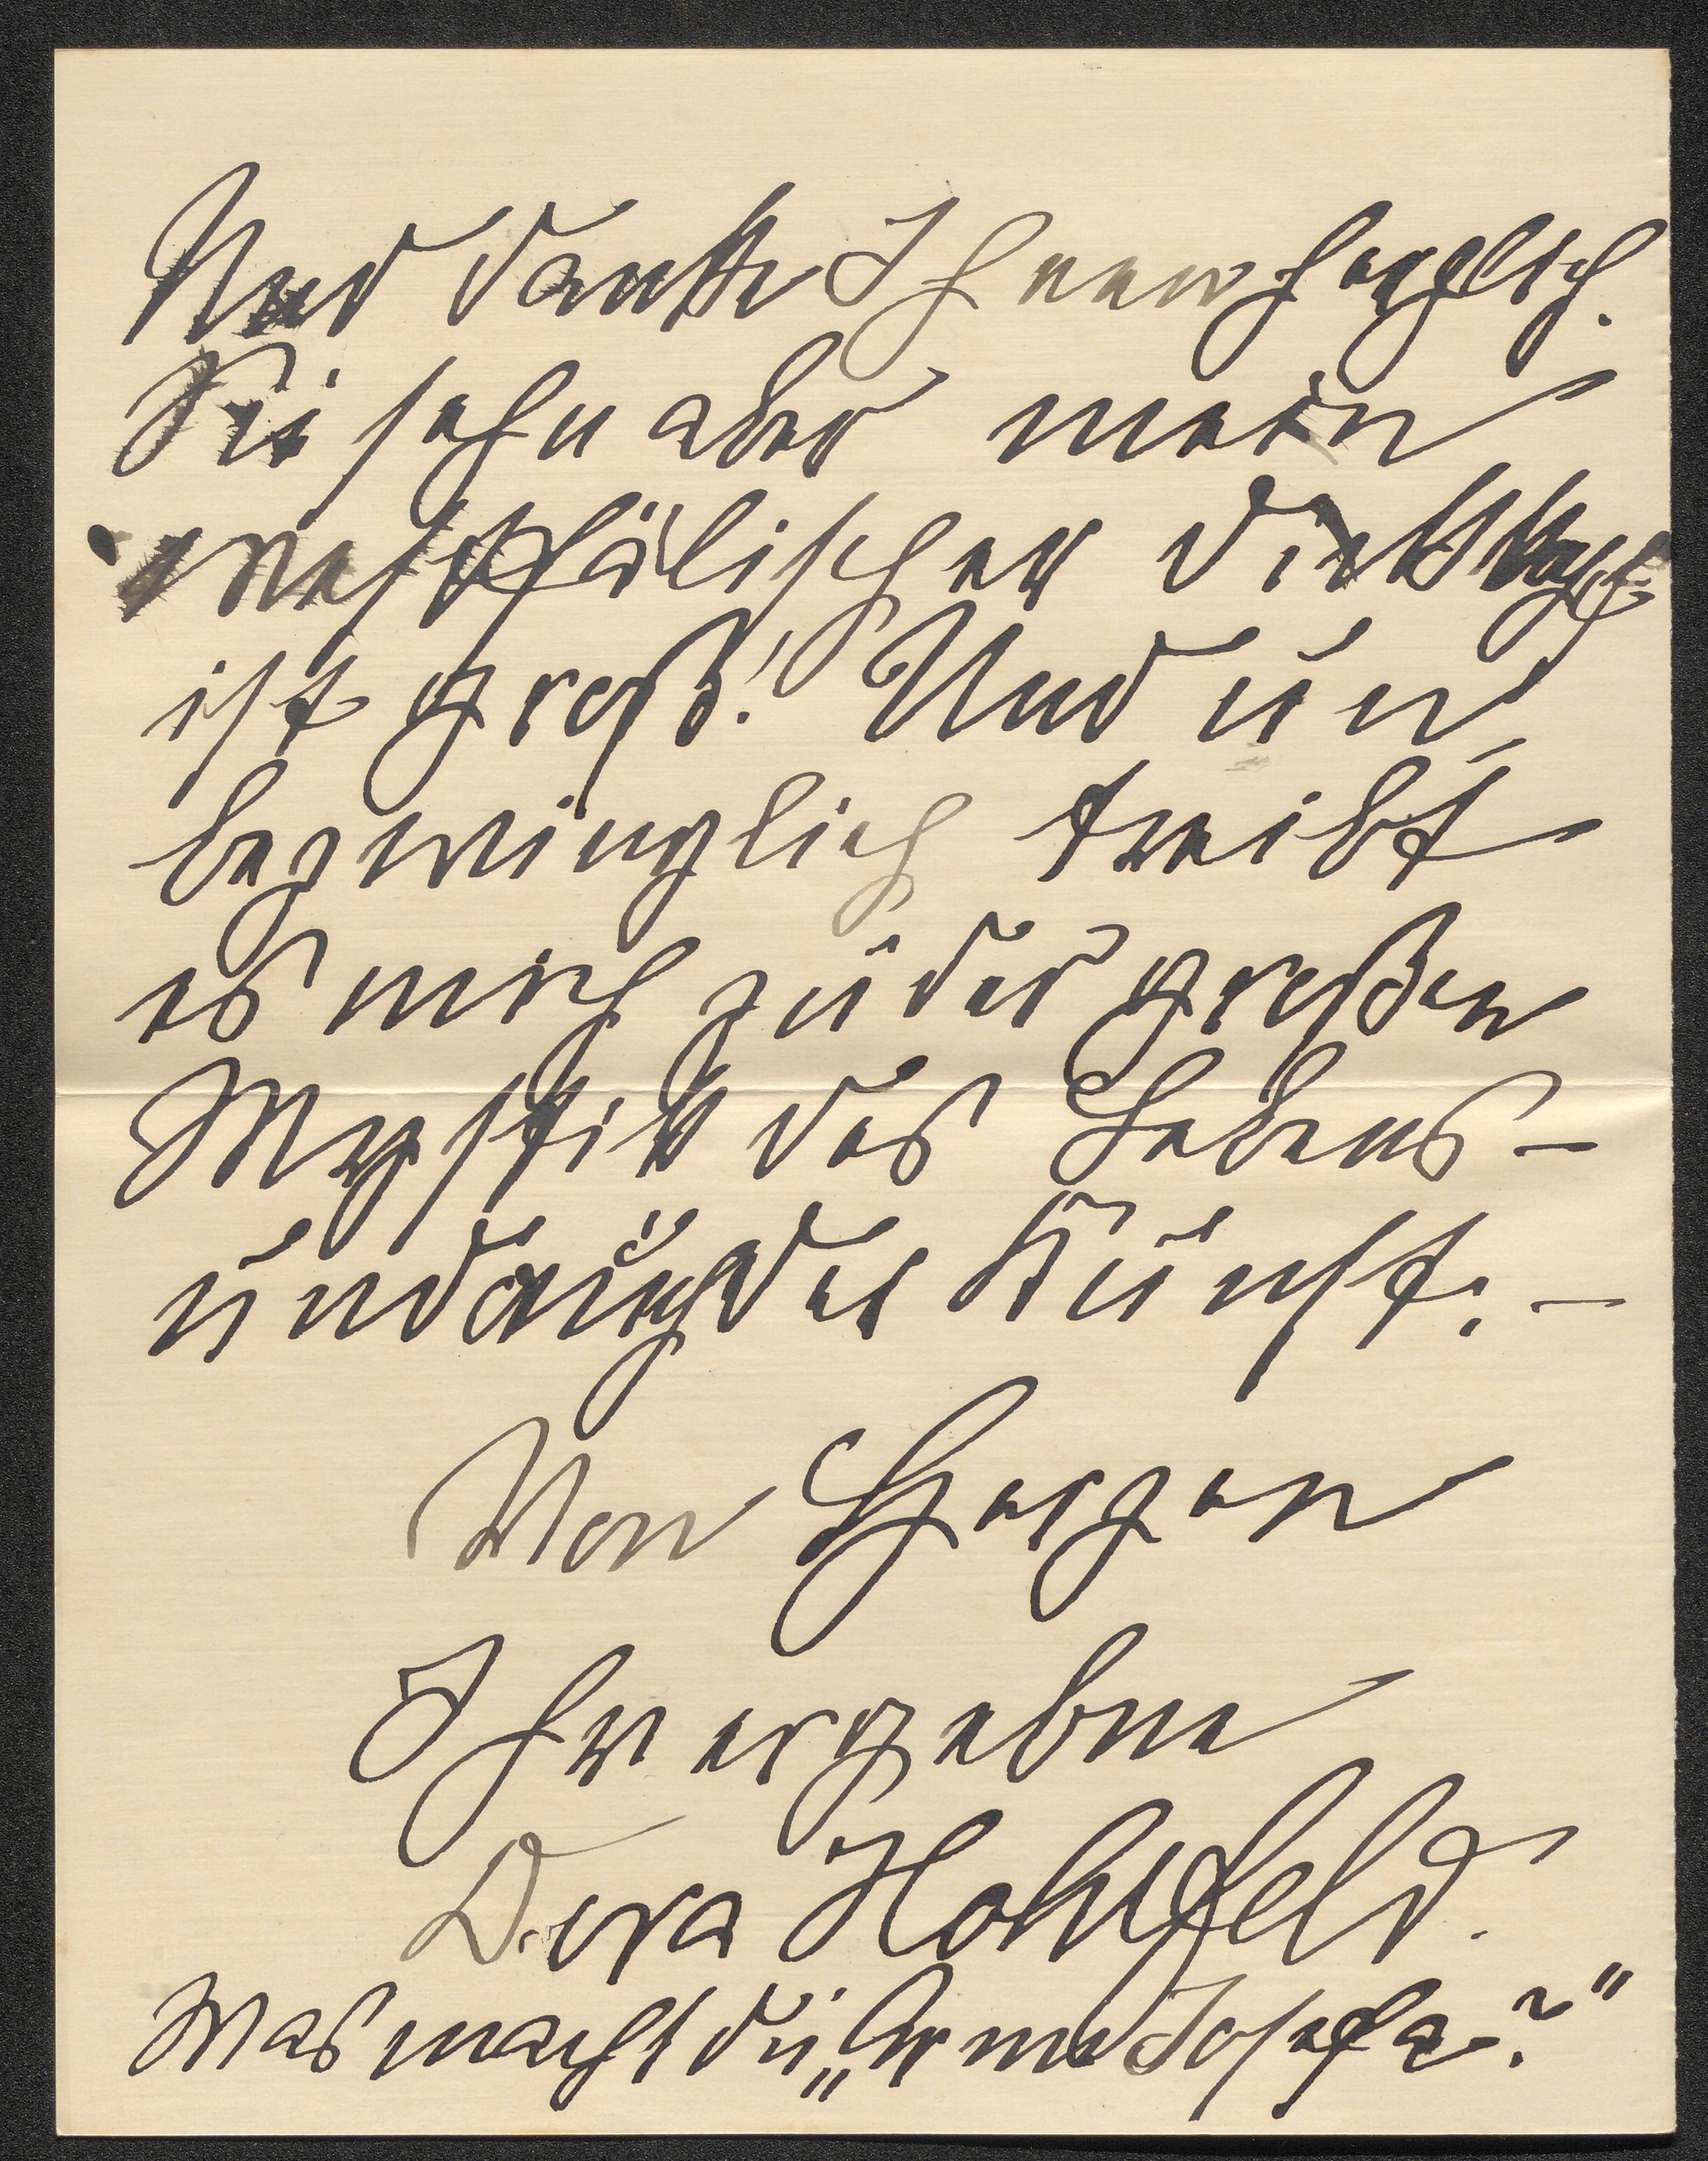 Und danke Ihnen herzlich.
Sie sehn aber mein
westfälischer Dickkopf
ist groß! Und un-
bezwinglich treibt
es mich zu der großen
Mystik des Lebens –
und auch der Kunst. –
Von Herzen
Ihr ergebne
Dora Hohlfeld.
Was macht die „Arme Josefa?"